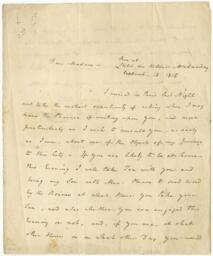 Rue et
Hotel du Helder, Wednesday
September 13 1815
Dear Madam
I arrived in Paris last Night
and take the earliest opportunity of asking when I may
have the Pleasure of waiting upon you, and more
particularly as I wish to consult you, as early
as I can, about one of the Objects of my Journey
to this City. If you are likely to be at home
this Evening I will take Tea with you and
bring my Son with me. Please to send word
by the Bearer at what Hour you take your
Tea, and also whether you are engaged this
Evening or not, and, if you are, at what
other Hour or on what other Day you would